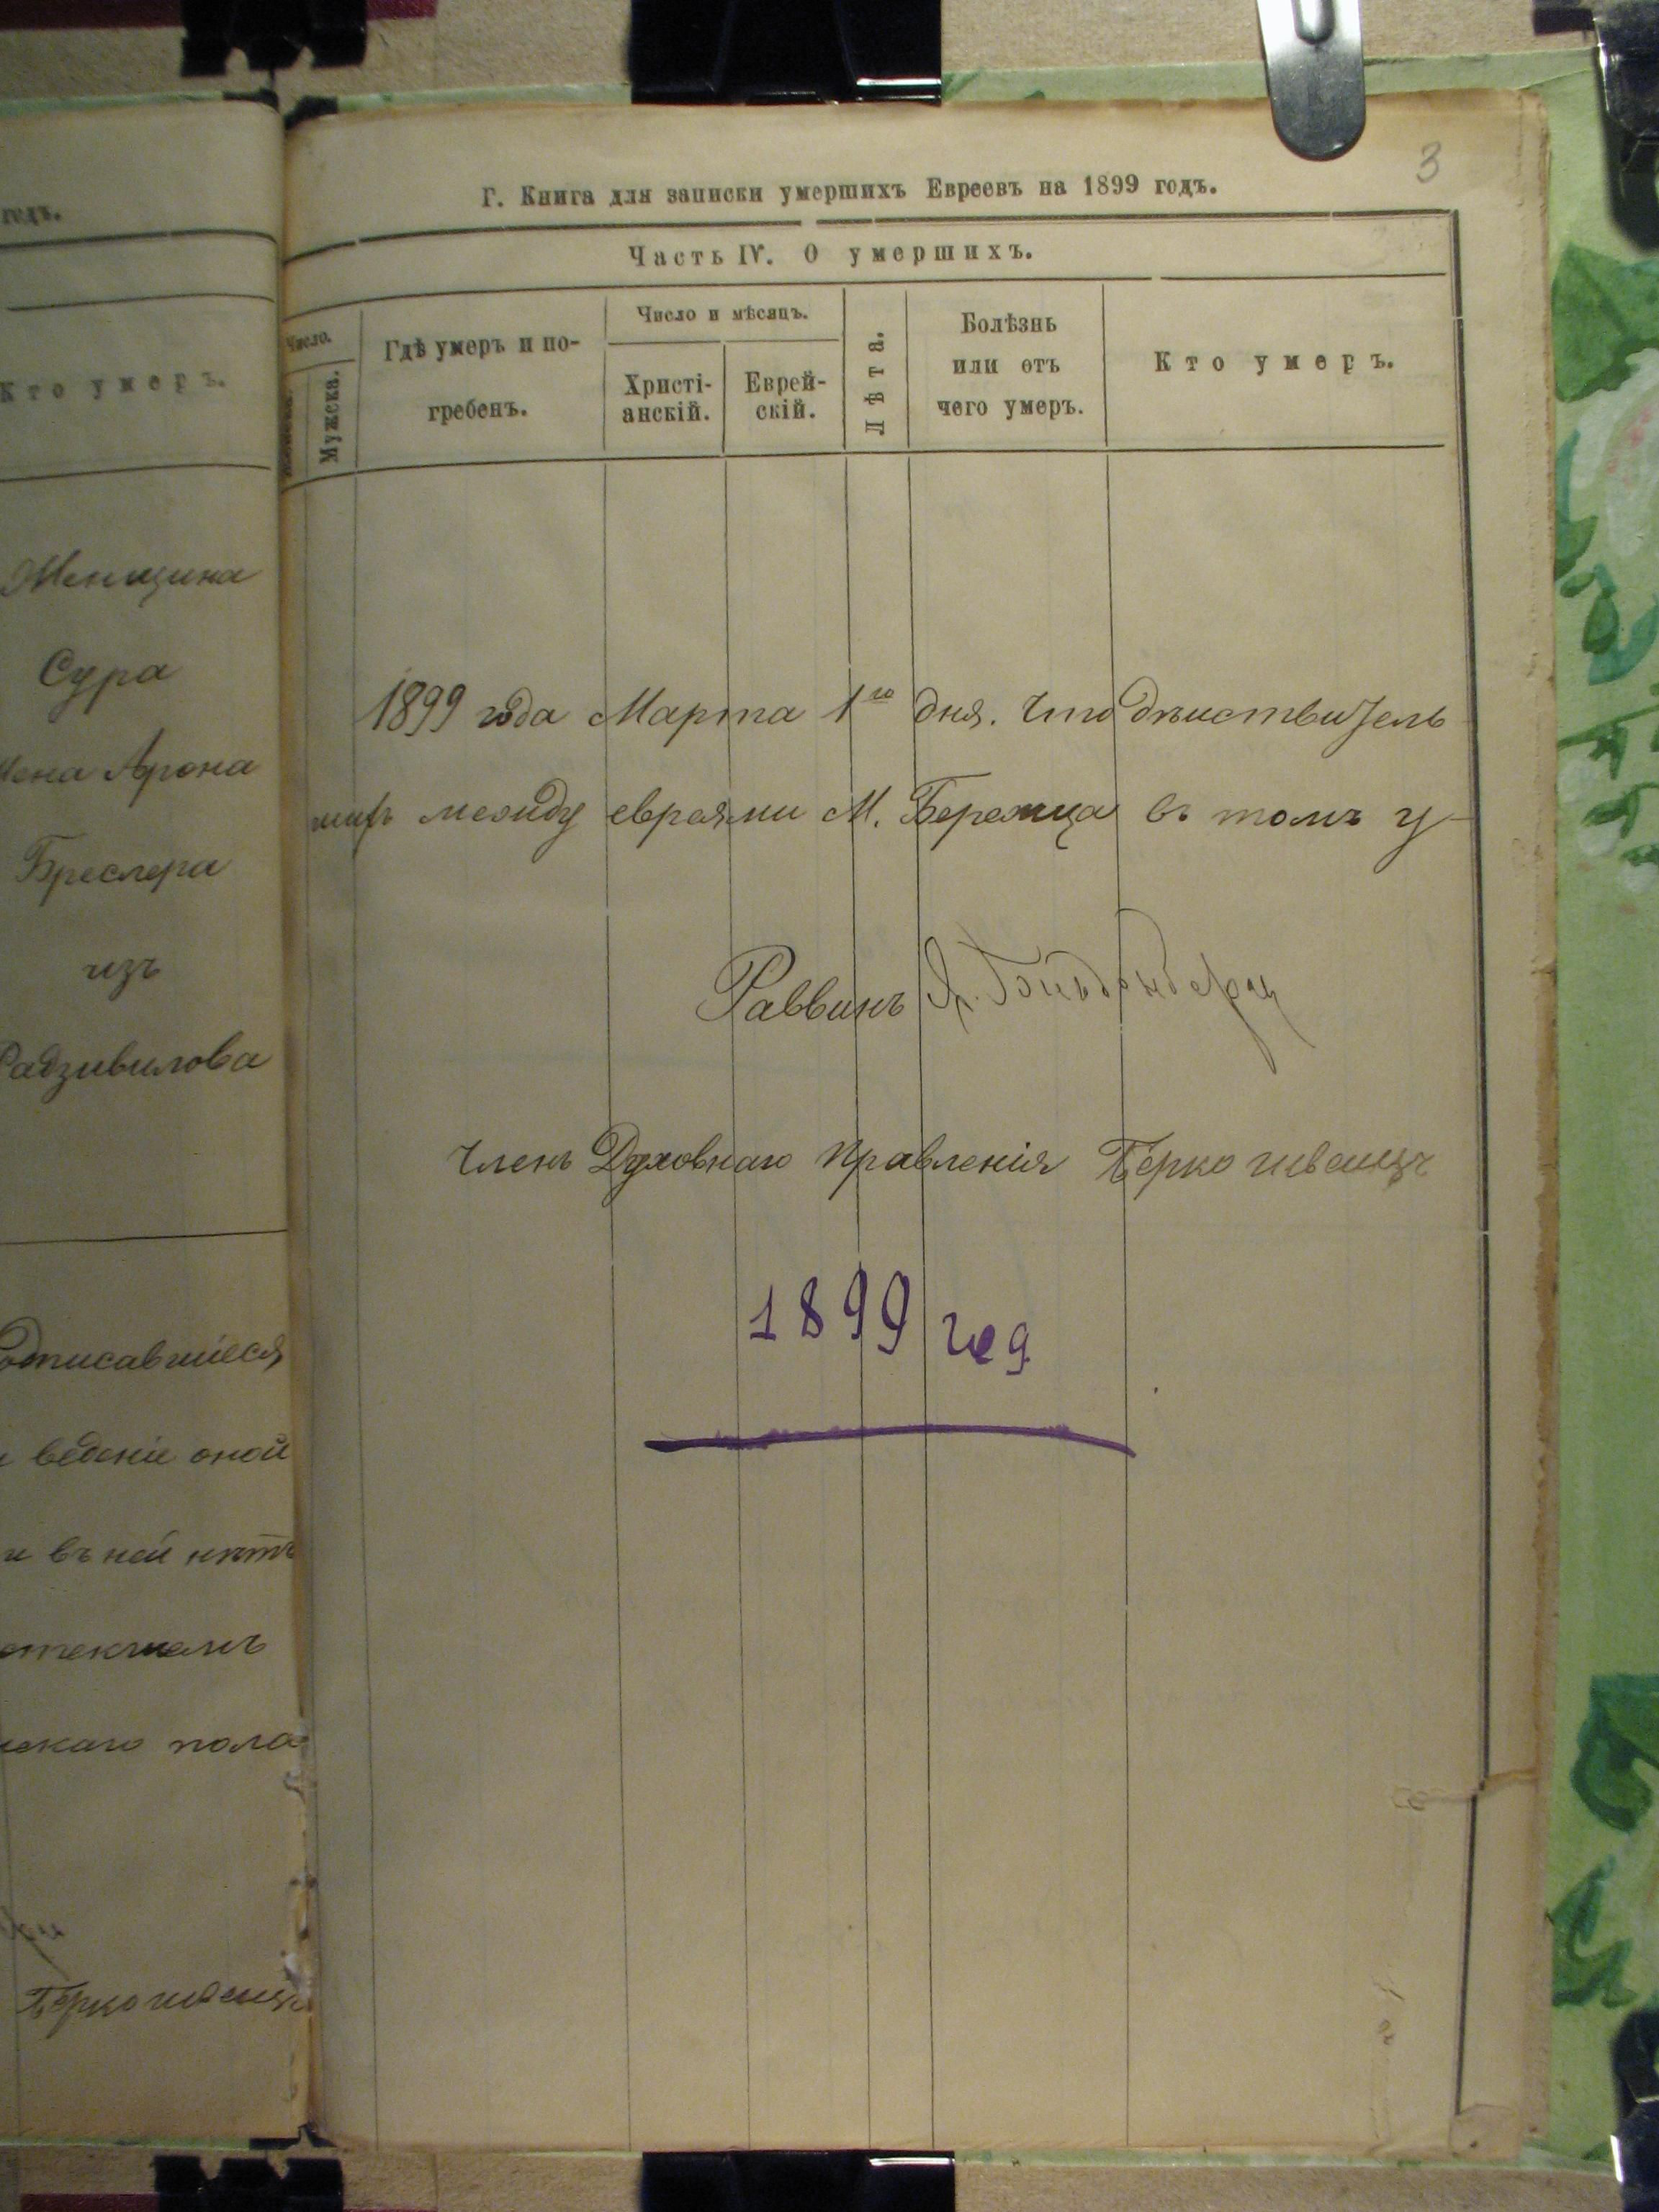 годъ.
Кто умеръ.
Женщина
Сура
Жена Арона
Бреслера
изъ
Радзивилова
подписавшіеся
веденіе оной
и въ ней нѣтъ
скаго пола
3
Г. Книга для записки умершихъ Евреевъ на 1899 годъ.
Часть IV. О умершихъ.
Число.
Мужска.
Гдѣ умеръ и по-
гребенъ.
Число и мѣсяцъ.
Христі-
анскій.
Еврей-
скій.
Лѣта.
Болѣзнь
или отъ
чего умеръ.
Кто умеръ.
1899 года Марта 1го дня. Что дѣиствитель
между евреями М. Бережца въ томъ у-
Раввинъ
Членъ Духовнаго Правленія Берко
1899 год